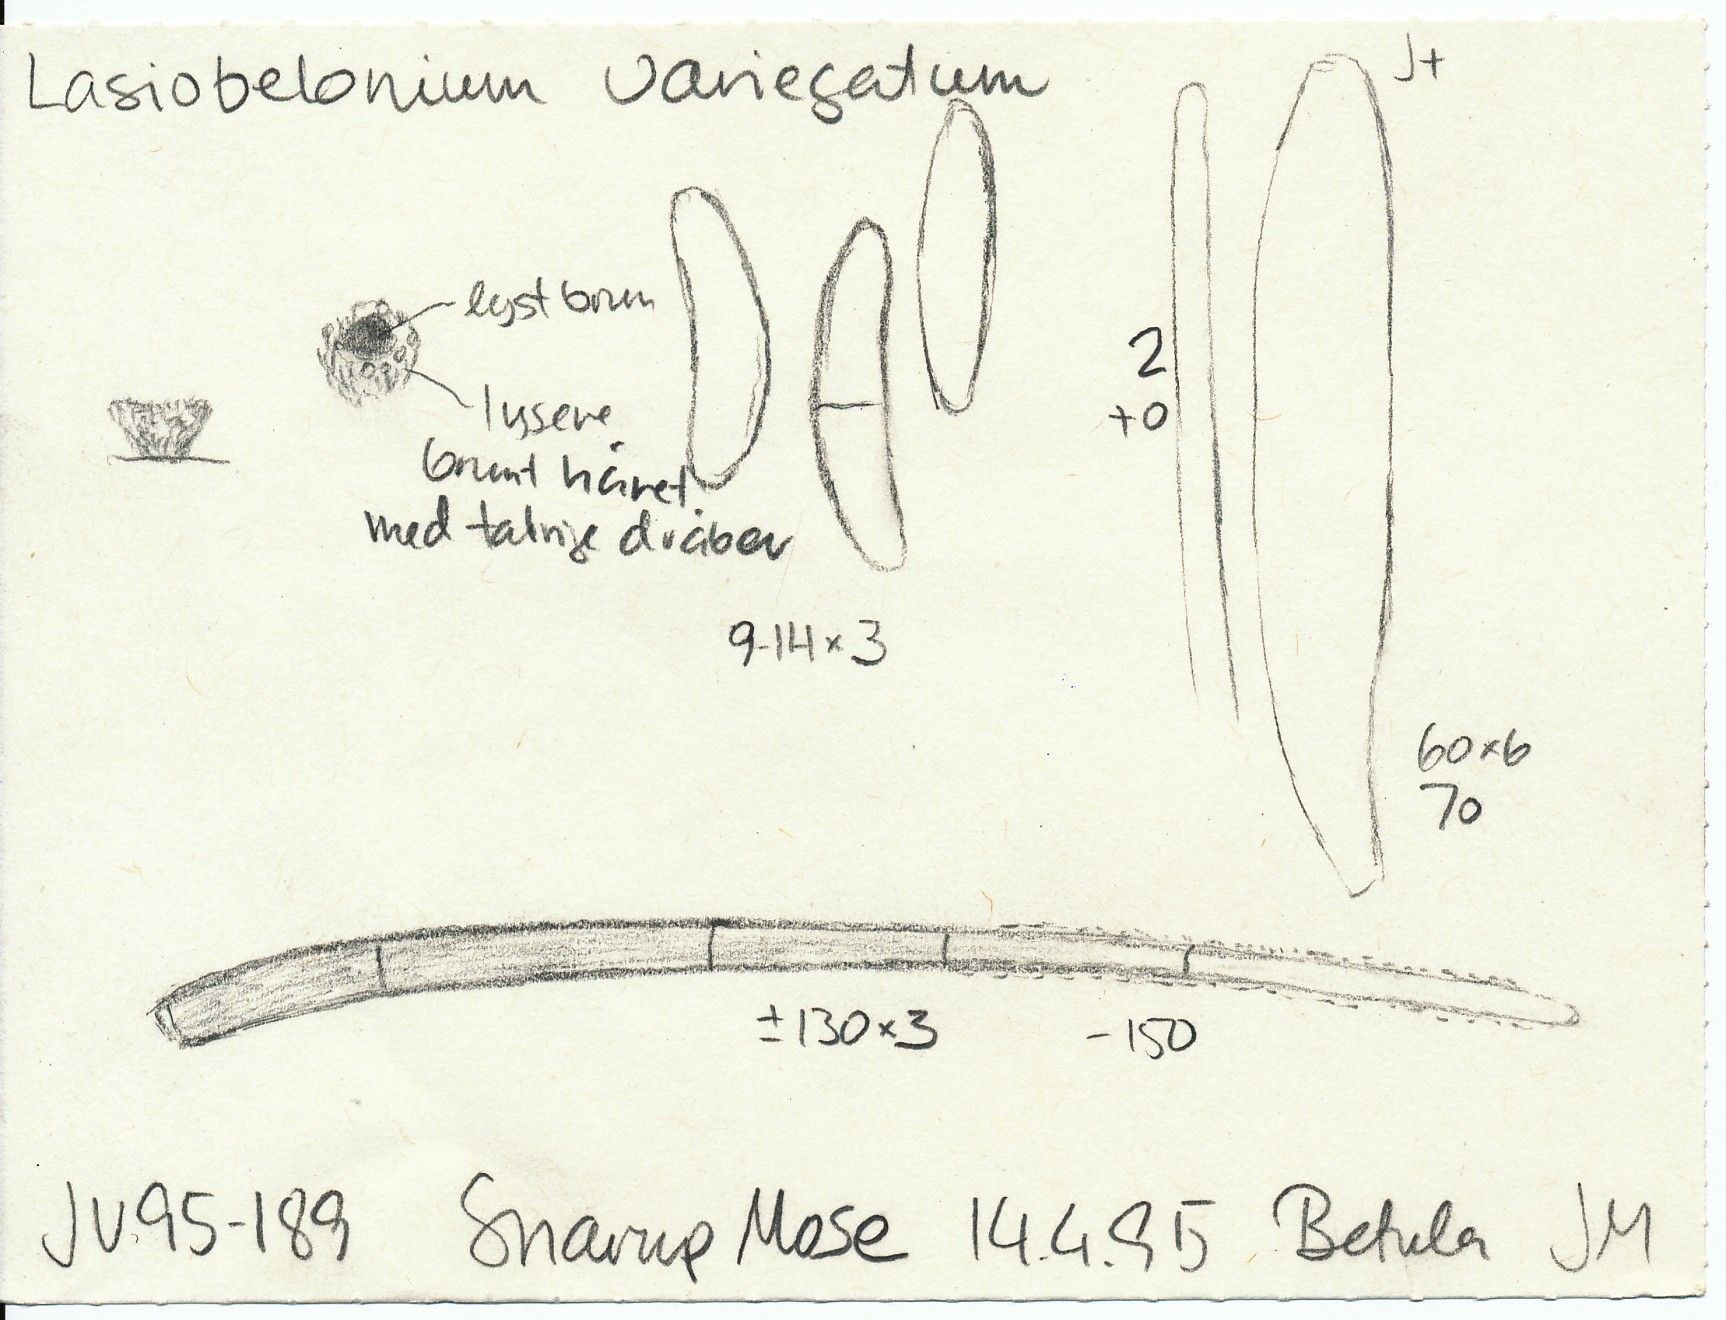 Lasiobelonium variegatum
J+
lyst brun
lysere
brunt håret
med talrige dråber
2
+0
9-14×3
60×6
70
±130×3 -150
JV.95-189 Snarup Mose 14.4.95 Betula JM